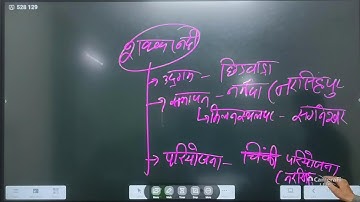 528 129
शक्कर नदी
→ उद्गम - छिंदवाड़ा
→ समापन - नर्मदा (नरसिंहपुर
मिलनस्थल पर -
→ परियोजना - चिंकी परियोजना